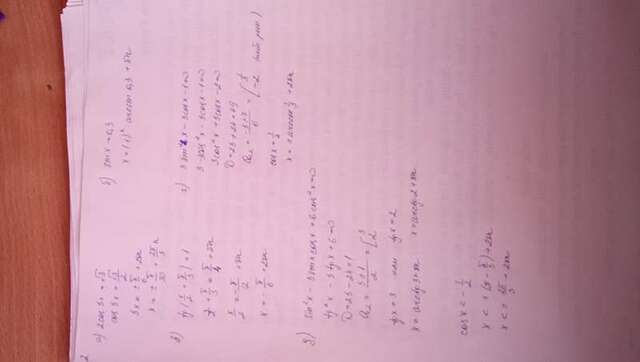 2
а) 2cos 3x = √3
cos 3x = √3/2
3x = ± π/6 + 2πn
x = ± π/18 + 2π/3 n
б) sin x = 0,3
x = (-1)ᵏ arcsin 0,3 + πn
в)
tg(x/2 + π/3) = 1
x/2 + π/3 = π/4 + πn
x/2 = -π/12 + πn
x = -π/6 + 2πn
г) 3 sin²x - 5cos x - 1 = 0
3 - 3cos²x - 5cos x - 1 = 0
3cos²x + 5cos x - 2 = 0
D = 25 + 24 = 49
cos x = 1/3
x = ± arccos 1/3 + 2πn
д) sin²x - 5 sin x cos x + 6 cos²x = 0
tg²x - 5 tg x + 6 = 0
D = 25 - 24 = 1
= (5 ± 1)/2 = [3 2
tg x = 3 или tg x = 2
x = arctg 3 + πn x = arctg 2 + πn
cos x < - 1/2
x < ± (π - π/3) + 2πn
x < ± 2π/3 + 2πn